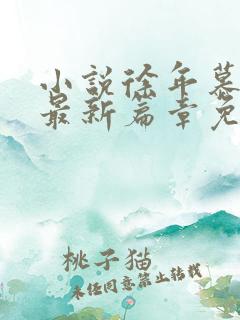 小说徐年慕
最新篇章免
桃子猫
未经同意禁止转载